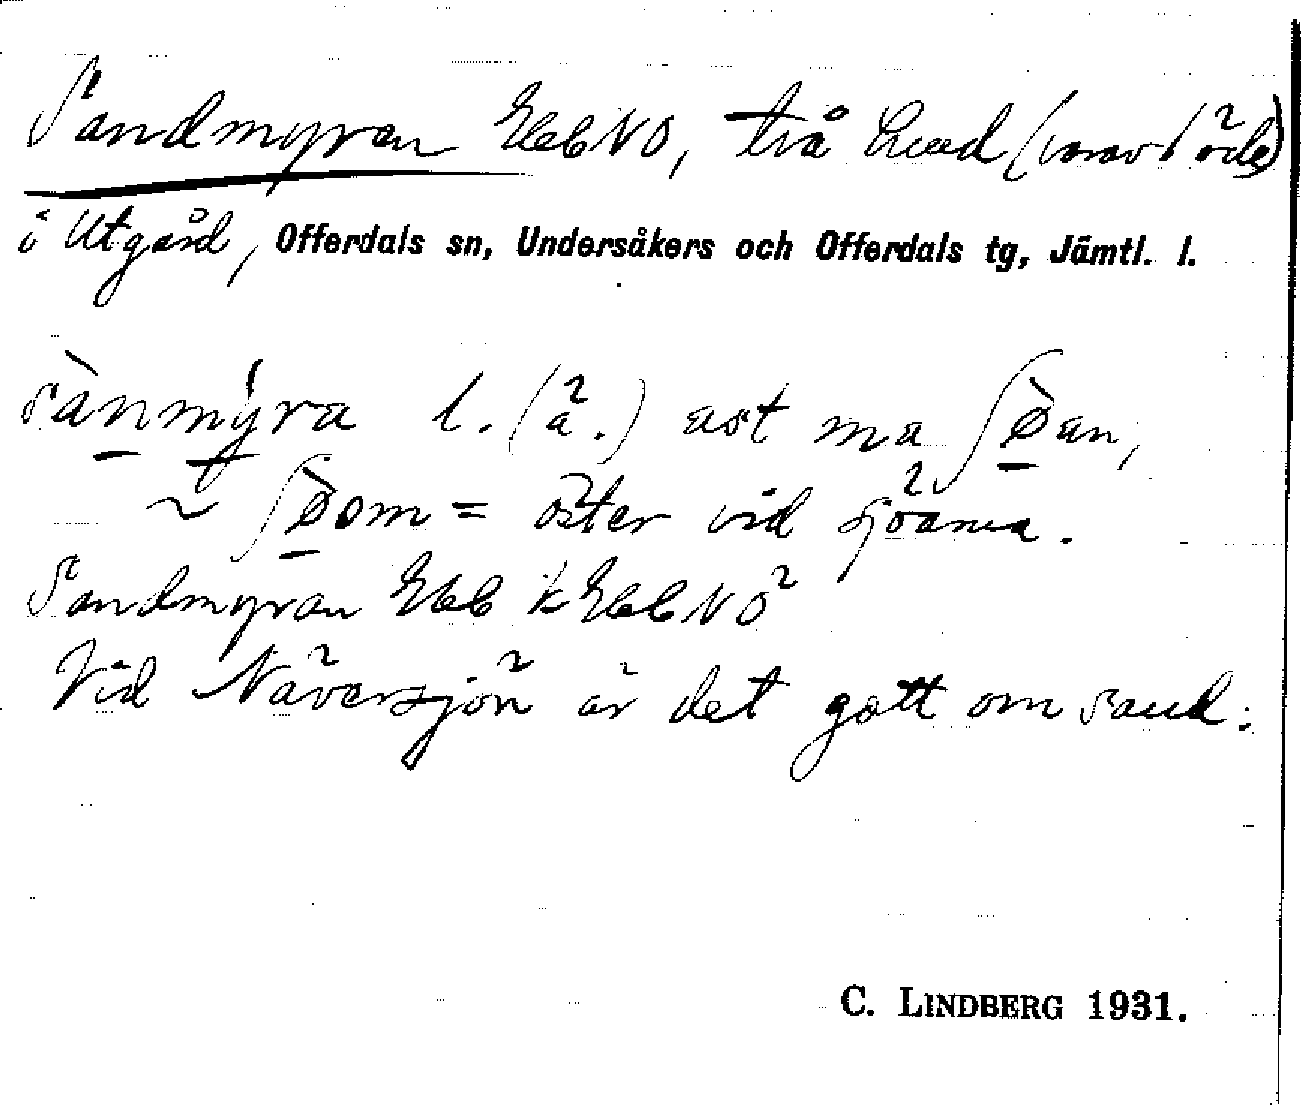 Sandmyran EbbNO, två hmd (varav 1 öde)
i Utgård, Offerdals sn, Undersåkers och Offerdals tg, Jämtl. l.
sànmy̍ra l. (ä.) ast ma ʃø̀an,
~ ʃø̀om = öster vid sjöarna.
Sandmyran Ebb k EbbNO
Vid Näversjön är det gott om sand.
C. LINDBERG 1931.